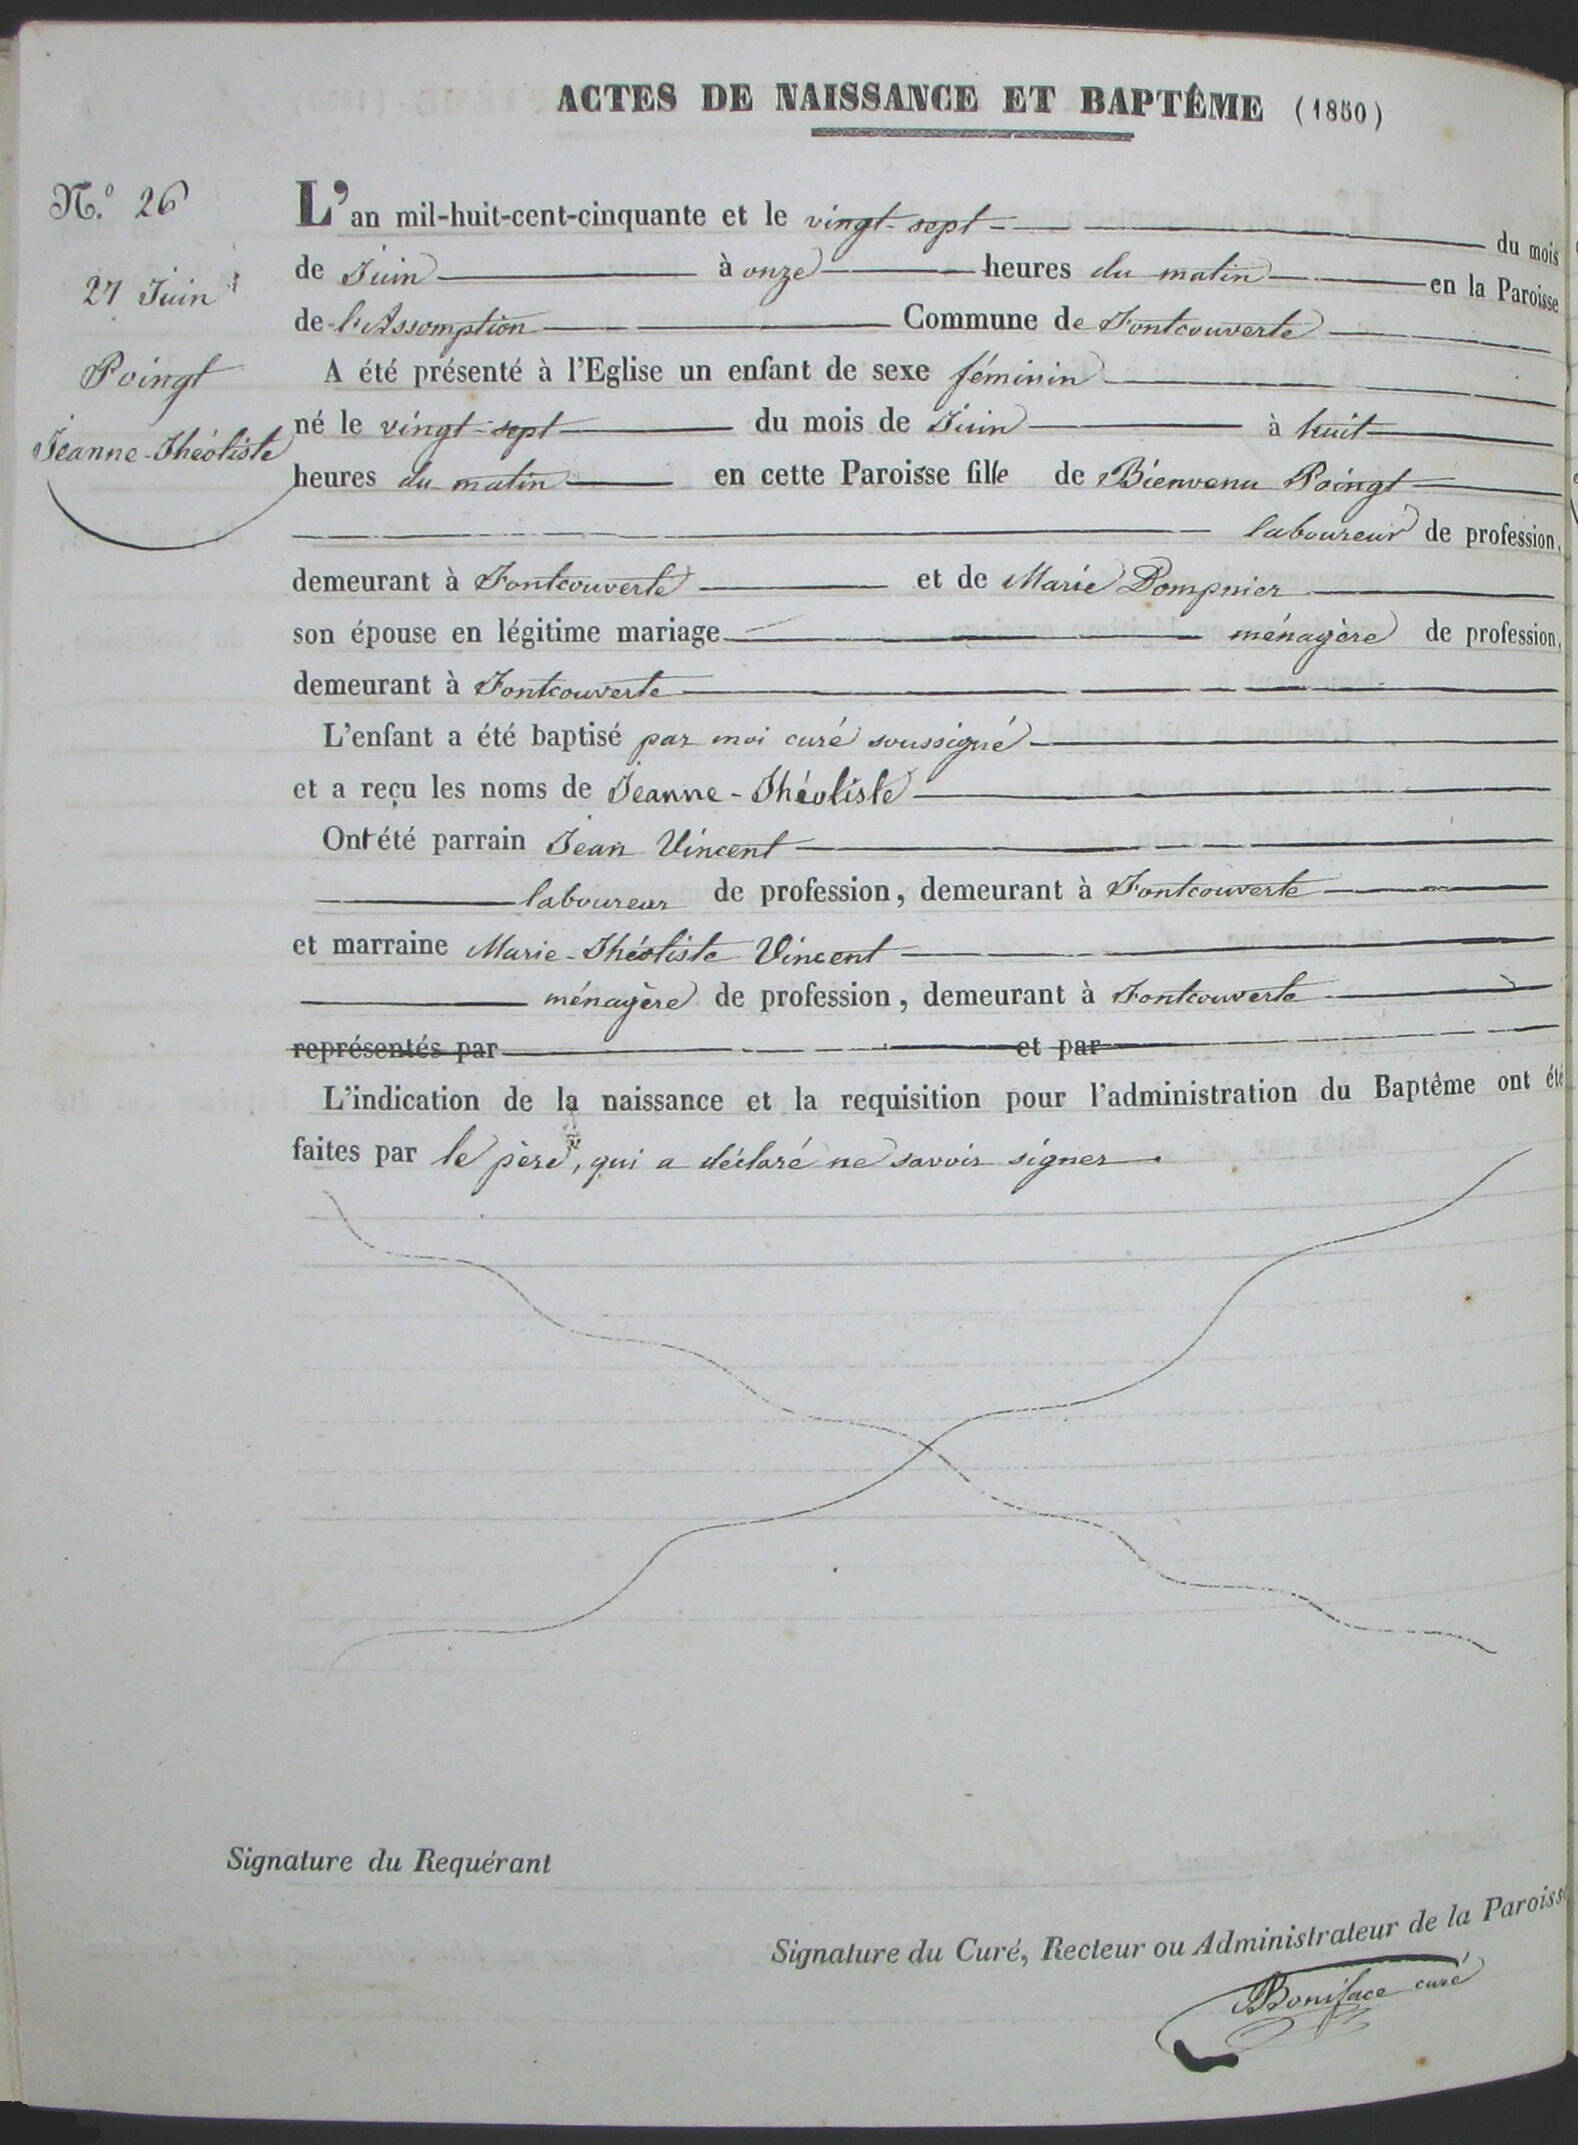 ACTES DE NAISSANCE ET BAPTÊME (1850)
N.o 26
27 Juin
Poingt
Jeanne-Théotiste
L'an mil-huit-cent-cinquante et le vingt-sept du mois
de Juin à onze heures du matin en la Paroisse
de l'Assomption Commune de Fontcouverte
A été présenté à l'Eglise un enfant de sexe féminin
né le vingt-sept du mois de Juin à huit
heures du matin en cette Paroisse fille de Bienvenu Poingt
laboureur de profession,
demeurant à Fontcouverte et de Marie Dompnier
son épouse en légitime mariage ménagère de profession,
demeurant à Fontcouverte
L'enfant a été baptisé par moi curé soussigné
et a reçu les noms de Jeanne-Théotiste
Ont été parrain Jean Vincent
laboureur de profession, demeurant à Fontcouverte
et marraine Marie-Théotiste Vincent
ménagère de profession, demeurant à Fontcouverte
représentés par et par
L'indication de la naissance et la requisition pour l'administration du Baptême ont été
faites par le père, qui a déclaré ne savoir signer.
Signature du Requérant
Signature du Curé, Recteur ou Administrateur de la Paroisse
Boniface curé